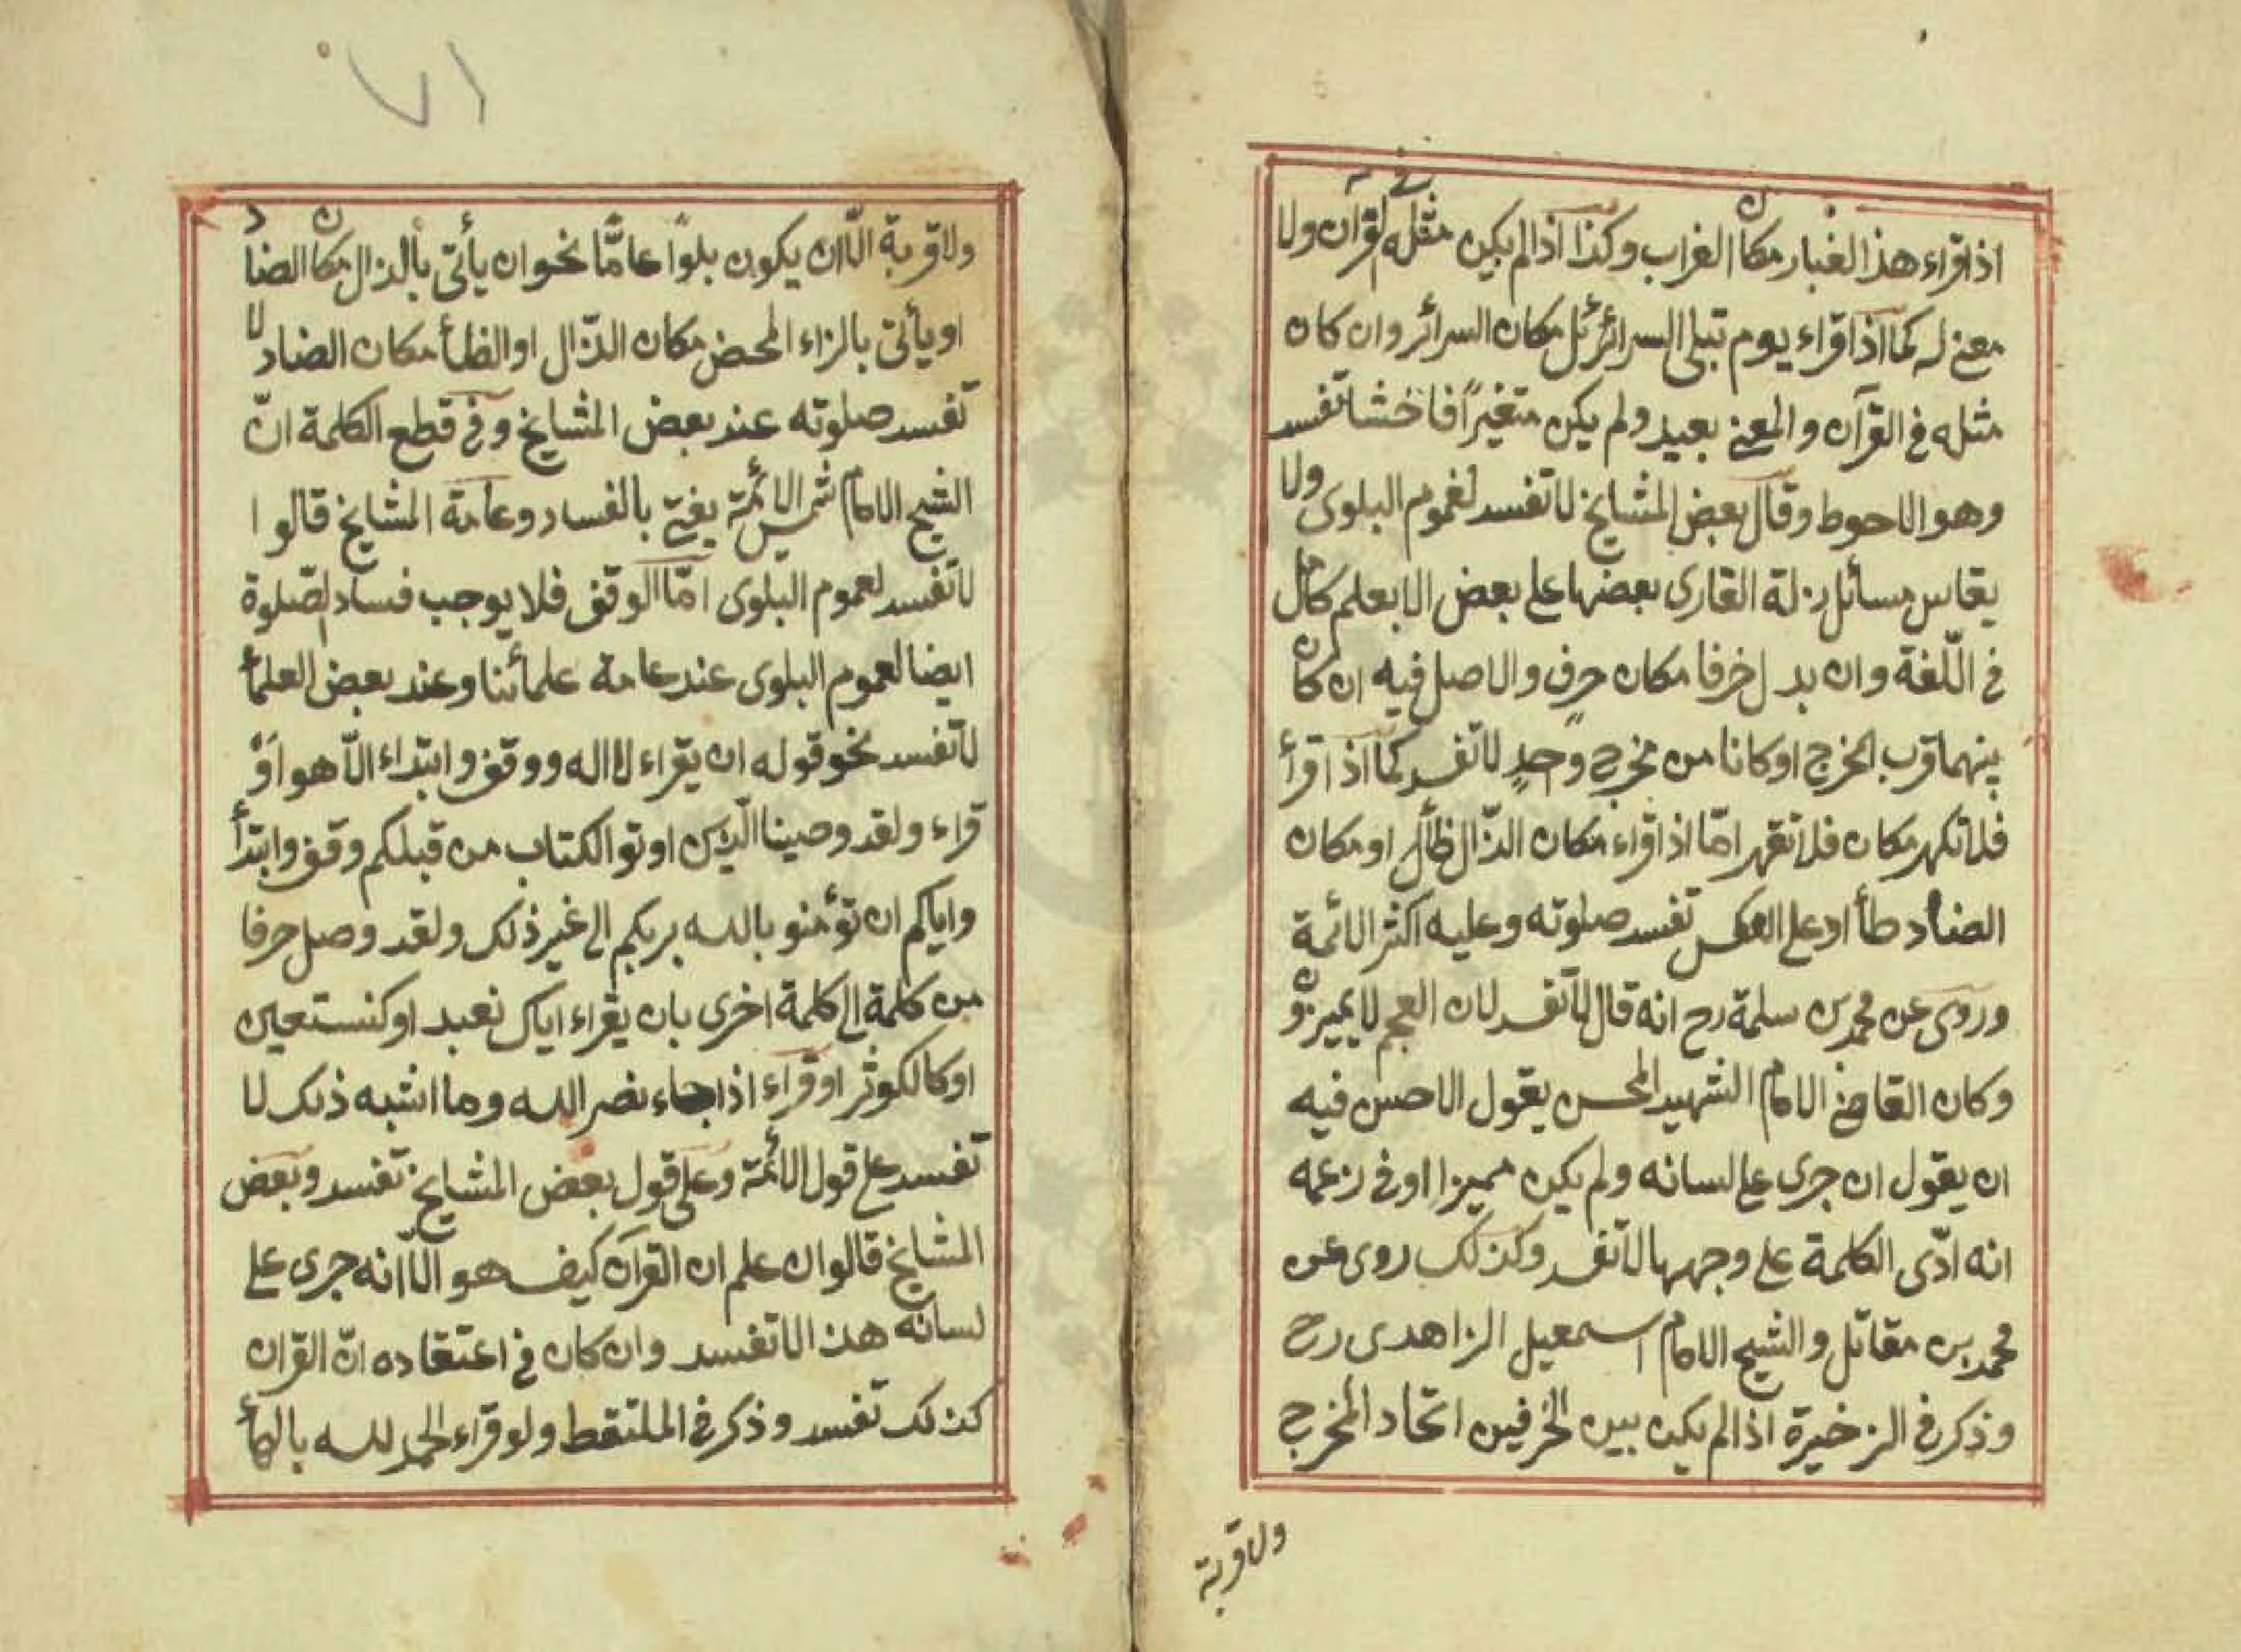 اذا قراء هذا الغبار مكان الغراب وكذا اذا لم يكن مثله فى القرآن ولا
معنى له كما اذا قراء يوم تبلى السرائر ئل مكان السرائر وان كان
مثله فى القرآن والمعنى بعيد ولم يكن متغيراً فاخشا تفسد
وهو الاحوط وقال بعض المشايخ لا تفسد لعموم البلوى ولا
يقاس مسائل زلة القارى بعضها على بعض الا بعلم كامل
فى اللّغة وان بدل خرفا مكان حرف والاصل فيه ان كان
بينهما قرب المخرج او كانا من مخرج وحدٍ لا تفسد كما اذا قرأ
فلا تكهر مكان فلا تقهر امّا اذا قراء مكان الذّال ظأل او مكان
الضاد طأ او على العكس تفسد صلوته وعليه اكثر الائمة
وروى عن محمد بن سلمة رح انه قال لا تفسد لان العجم لا يميزون
وكان القاضى الامام الشهيد المحسن يقول الاحسن فيه
ان يقول ان جرى على لسانه ولم يكن مميزا او فى زعمه
انه ادّى الكلمة على وجهها لا تفسد وكذلك روى عن
محمد بن مقاتل والشيخ الامام اسمعيل الزاهدى رح
وذكر فى الزخيرة اذا لم يكن بين الخرفين اتحاد المخرج
ولا قربة
٧١
ولا قربة الّا ان يكون بلوًا عامًّا نحو ان يأتى بألذال مكان الضاد
او يأتى بالزاء المحض مكان الذّال او الظأ مكان الضاد لا
تفسد صلوته عند بعض المشايخ وفى قطع الكلمة انّ
الشيخ الامام شمس الائمة يفتى بالفساد وعامة المشايخ قالوا
لا تفسد لعموم البلوى امّا الوقف فلا يوجب فساد الصّلوة
ايضا لعموم البلوى عند عامة علمأئنا وعند بعض العلمأ
لا تفسد نحو قوله ان يقراء لا اله ووقف وابتداء الّا هو اَوْ
قراء ولقد وصينا الّذين اوتو الكتاب من قبلكم وقف وابتدأ
واياكم ان تؤمنو بالله بربكم الى غير ذلك ولقد وصل حرفا
من كلمة الى كلمة اخرى بان يقراء اياك نعبد او كنستعين
او كالكوثر او قراء اذا جاء نصر الله وما اشبه ذلك لا
تفسد على قول الائمة وعلى قول بعض المشايخ تفسد وبعض
المشايخ قالوا ان علم ان القرآن كيف هو الّا انه جرى على
لسانه هذا لا تفسد وان كان فى اعتقاده انّ القران
كذلك تفسد وذكر فى الملتقط ولو قراء الحمد لله بالهأ